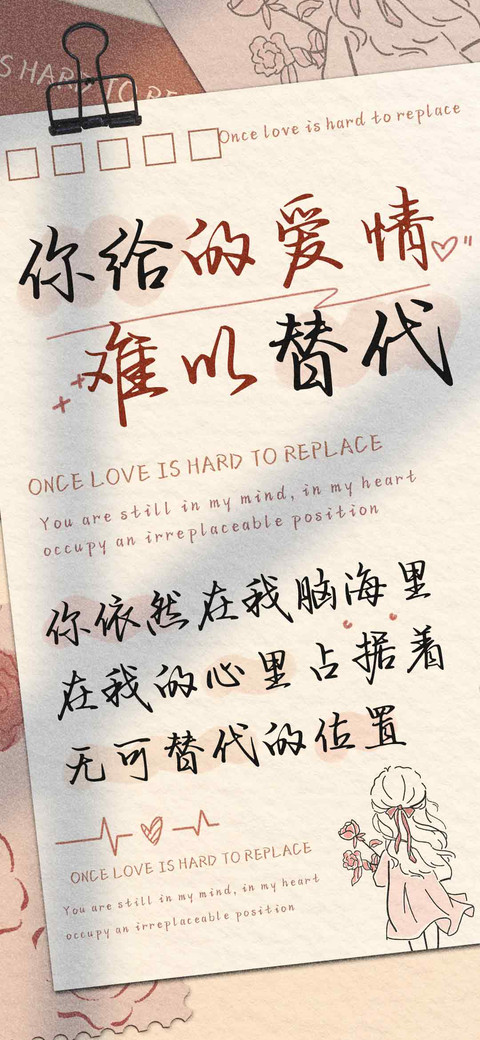 S HARD TO RE
Once love is hard to replace
你给的爱情
难以替代
ONCE LOVE IS HARD TO REPLACE
You are still in my mind, in my heart
occupy an irreplaceable position
你依然在我脑海里
在我的心里占据着
无可替代的位置
ONCE LOVE IS HARD TO REPLACE
You are still in my mind, in my heart
occupy an irreplaceable position